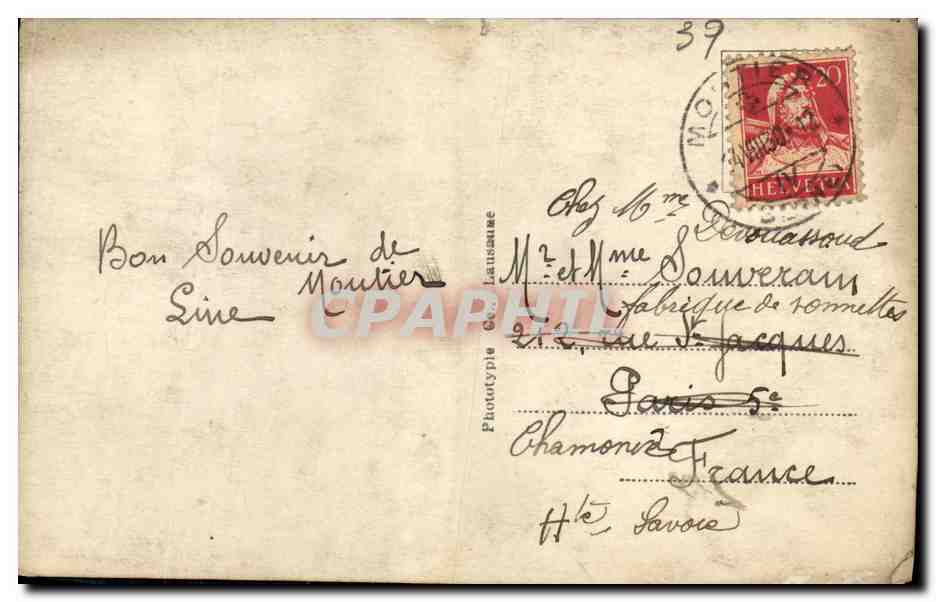 39
MOUTIER
20
HELVETIA
Bon Souvenir de
Moutier
Line
Phototypie Co. Lausanne
Chez Mme
Devouassoud
Mr et Mme Souverain
fabrique de sonnettes
212, rue St Jacques
Paris 5e
Chamonix
France
Hte Savoie
CPAPHIL